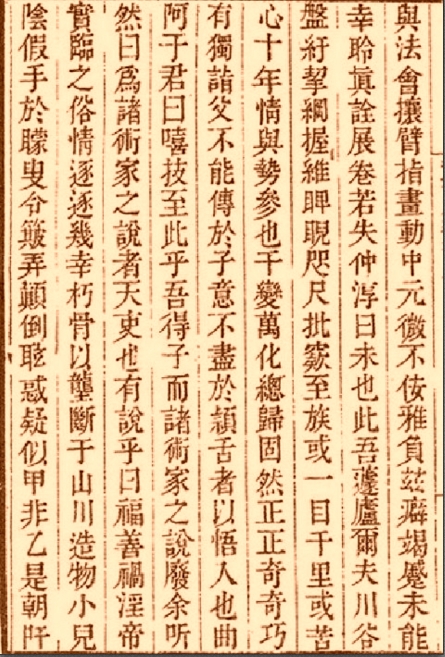 與法會攘臂指畫動中元微不佞雅負玆癖竭蹷未能
幸聆眞詮展卷若失仲淳曰未也此吾蘧廬爾夫川谷
盤紆挈綱握維睥睨咫尺批窾至族或一目千里或苦
心十年情與勢參也千變萬化總歸固然正正奇奇巧
有獨詣父不能傳於子意不盡於頰舌者以悟入也曲
阿于君曰嘻技至此乎吾得子而諸術家之說廢余听
然曰爲諸術家之說者天吏也有說乎曰福善禍淫帝
實臨之俗情逐逐幾幸朽骨以壟斷于山川造物小兒
陰假手於矇叟令簸弄顚倒眩惑疑似甲非乙是朝旰